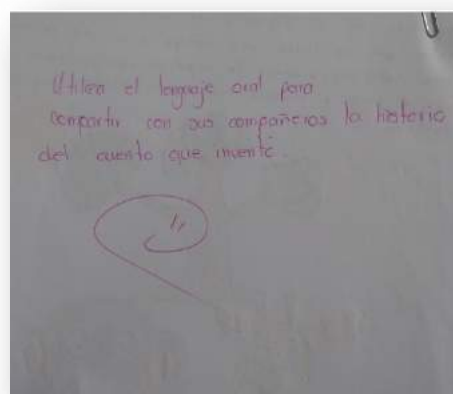 Utiliza el lenguaje oral para
compartir con sus compañeros la historia
del cuento que inventó.